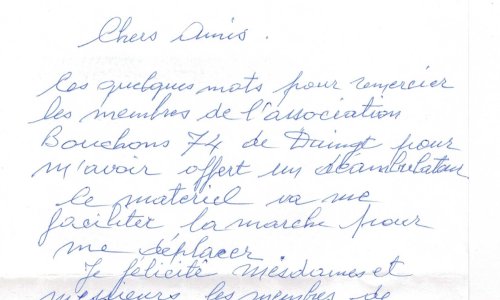 Chers Amis.
Ces quelques mots pour remercier
les membres de l'association
Bouchons 74 de Duingt pour
m'avoir offert un déambulateur
le matériel va me
faciliter la marche pour
me déplacer
Je félicite mesdames et
messieurs les membres de